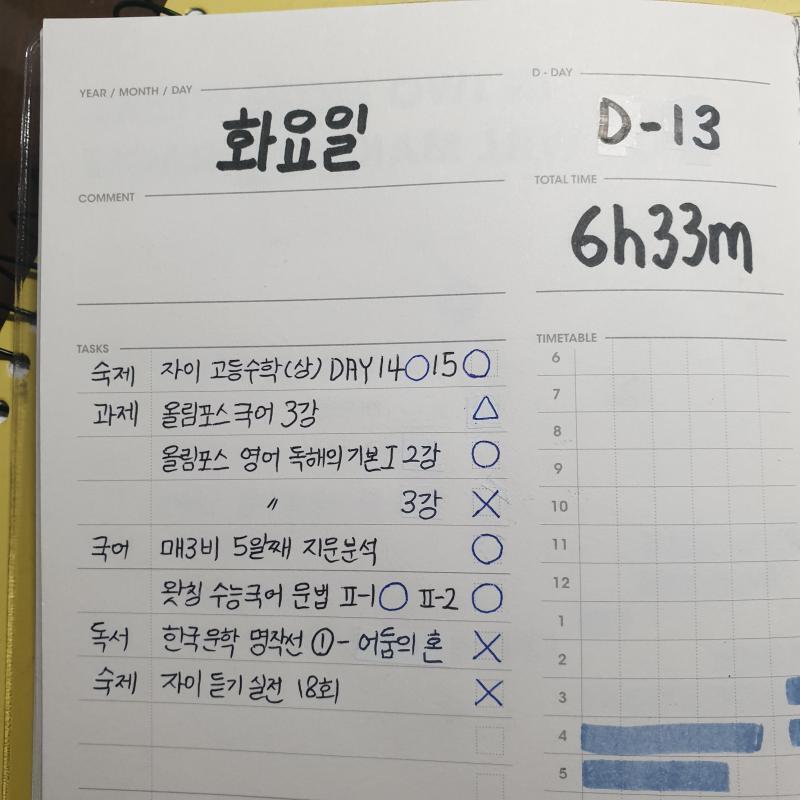 YEAR / MONTH / DAY
화요일
D - DAY
D-13
COMMENT
TOTAL TIME
6h33m
TASKS
숙제 자이 고등수학(상) DAY 14 ○ 15 ○
과제 올림포스 국어 3강 △
올림포스 영어 독해의 기본 I 2강 ○
〃 3강 ×
국어 매3비 5일째 지문분석 ○
왓칭 수능국어 문법 II-1 ○ II-2 ○
독서 한국문학 명작선 ① - 어둠의 혼 ×
숙제 자이 듣기 실전 18회 ×
TIMETABLE
6
7
8
9
10
11
12
1
2
3
4
5